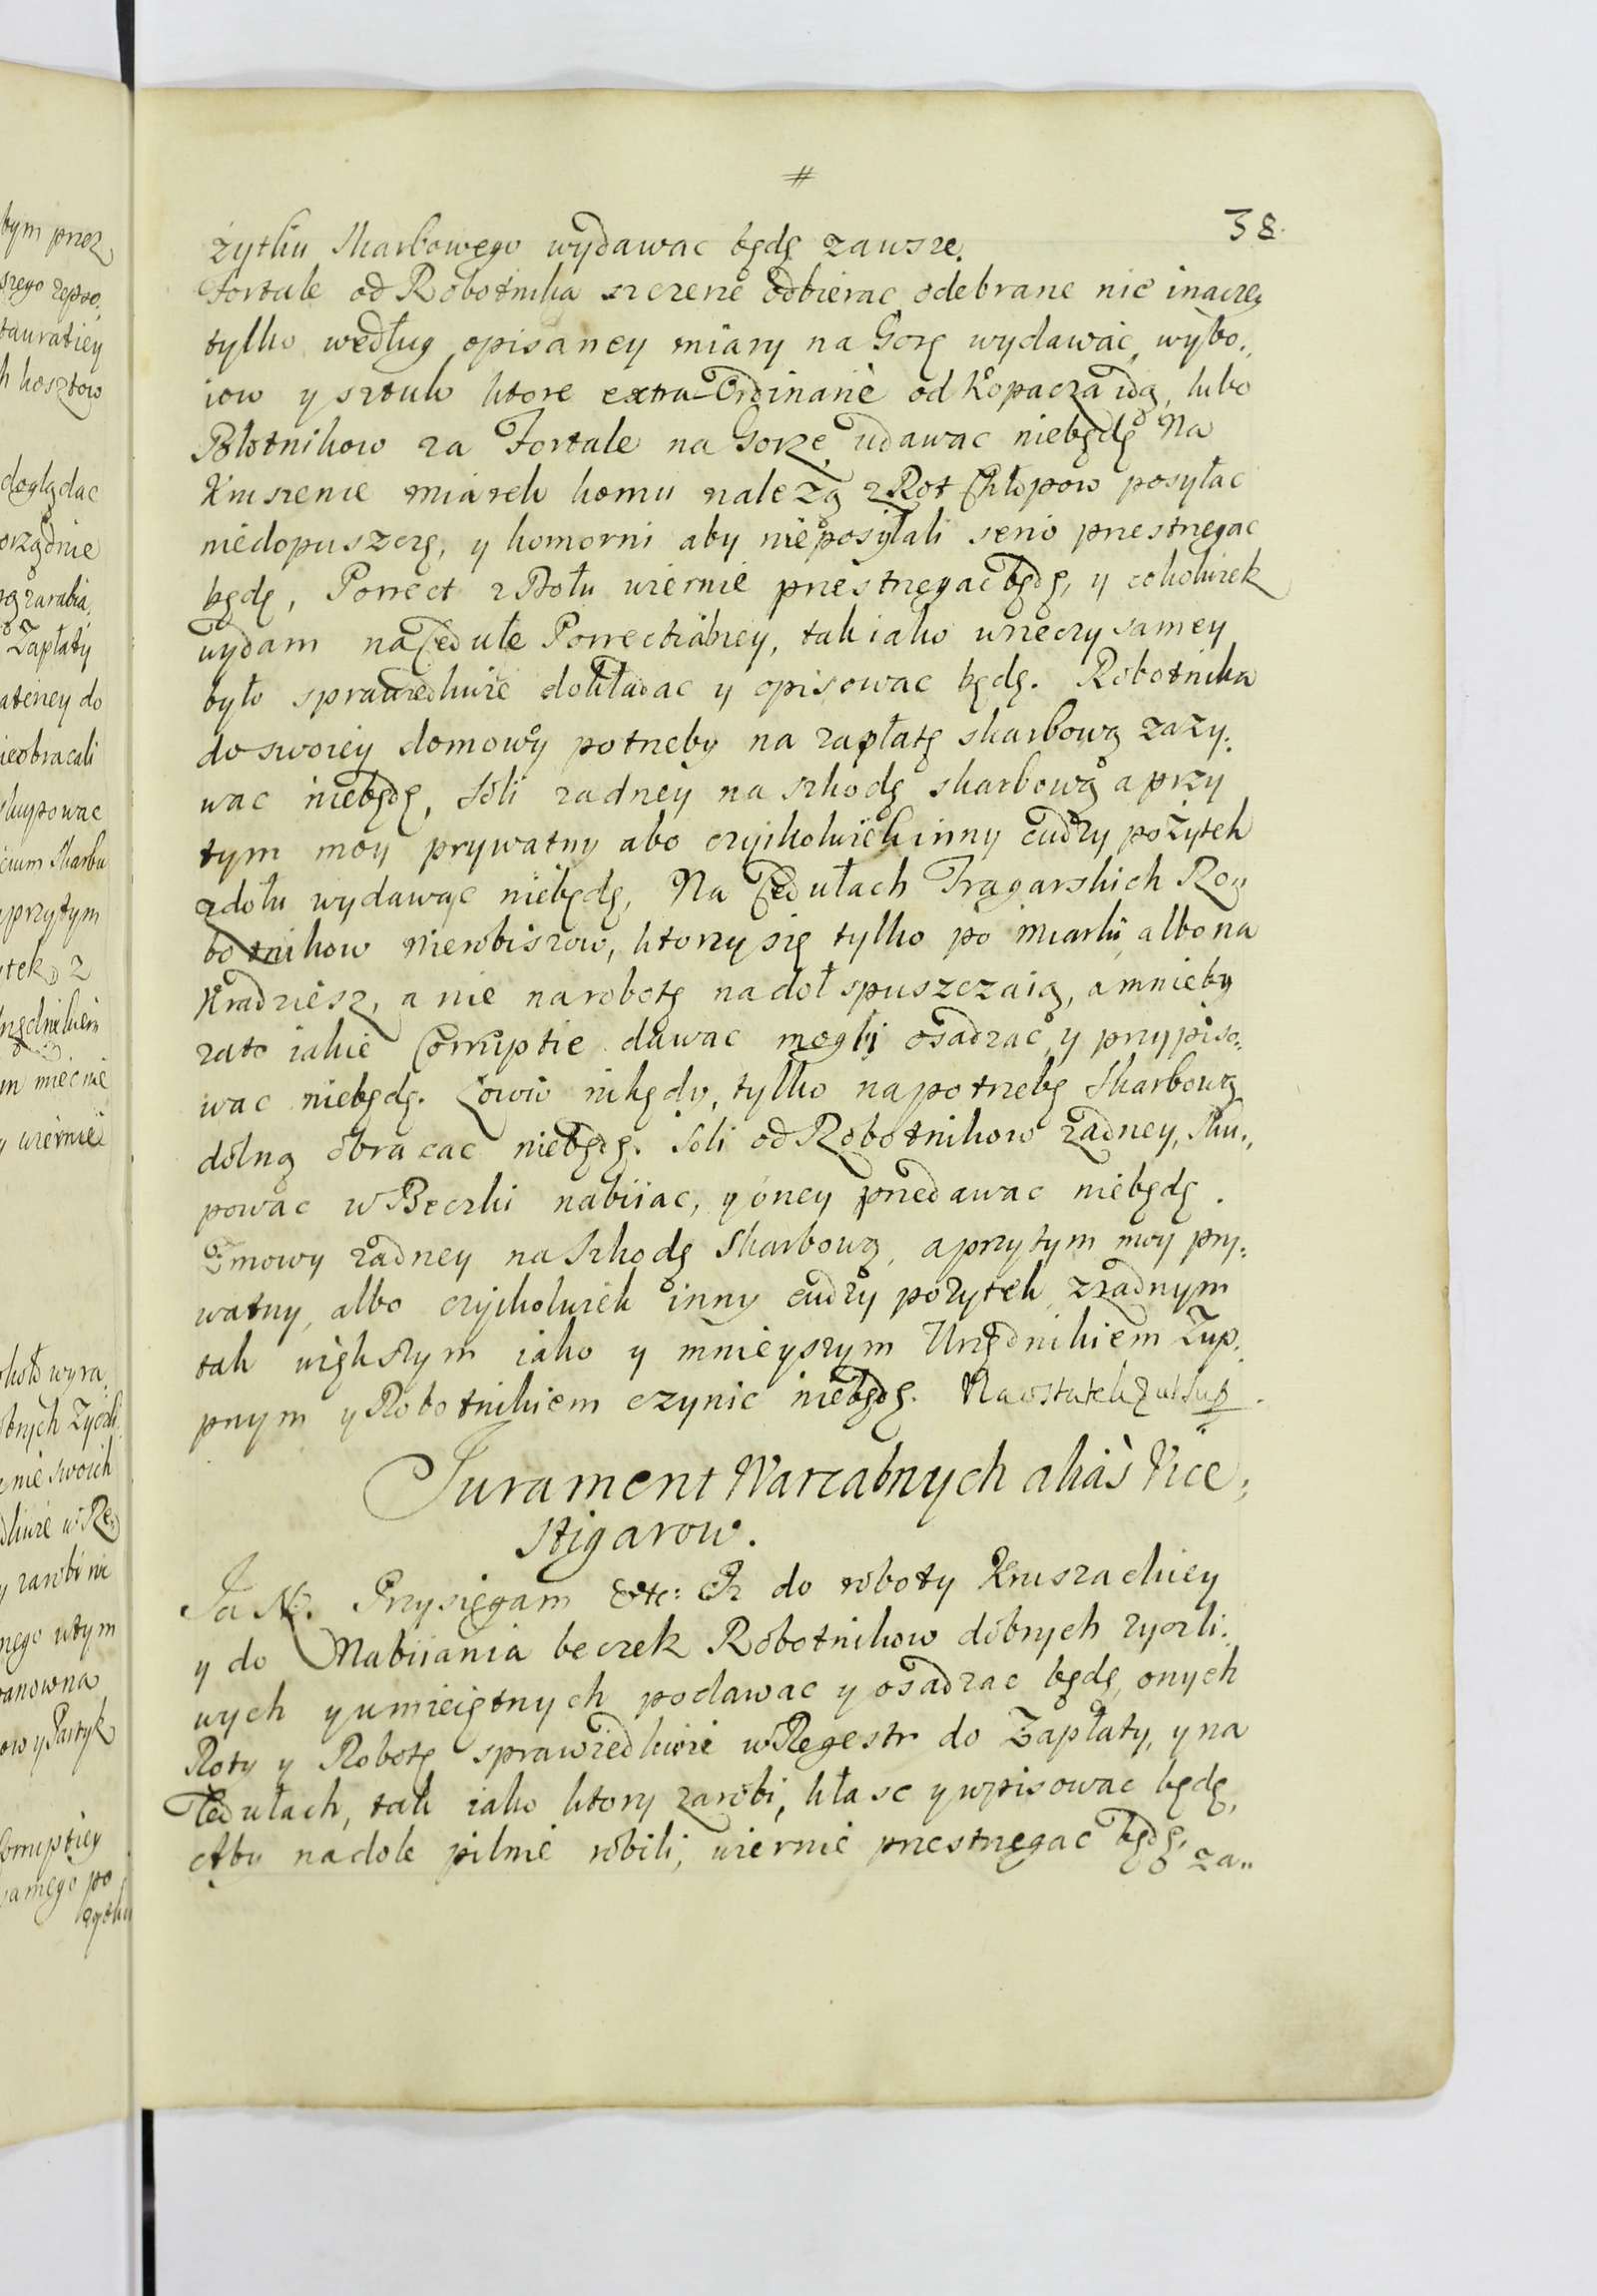 #
38.
żytku Skarbowego wydawac będę zawsze.
Fortale od Robotnika szczerze odbierac, odebrane nie inaczey
tylko według opisaney miary na Gorę wydawać, wybo„
iow y sztuk ktore extra-Ordinariè od Kopacza idą, lubo
Błotnikow za Fortale na Gorze udawac niebędę Na
Kruszenie miarek komu należą z Rot Chłopow posyłac
niedopuszczę, y komorni aby nieposyłali serio przestrzegac
będę, Porrect z Dołu wiernie przestrzegac będę, y cokolwiek
wydam na Cedule Porrectàlney, tak iako wrzeczy samey
było sprawiedliwie dokładac y opisowac będę. Robotnika
do swoiey domowy potrzeby na zapłatę skarbową zazy:
wac niebędę, Soli zadney na szkodę skarbową a przy
tym moy prywatny abo czyikolwiek inny cudzy pożytek
z dołu wydawac niebędę, Na Cedułach Tragarskich Ro„
botnikow Nierobiszow, ktorzy się tylko po miarki, albo na
Kradziesz, a nie na robotę na doł spuszczaią, a mnieby
zato iakie Corruptie dawac mogli osadzac, y przypiso„
wac niebędę. Łowiw nikędy, tylko na potrzebę Skarbową
dolną obracac niebędę. Soli od Robotnikow żadney, sku„
powac w Beczki nabiiac, y oney przedawac niebędę.
Zmowy zadney na Szkodę Skarbową, a przytym moy pry:
watny, albo czyikolwiek inny cudzy pożytek, z żadnym
tak większym iako y mnieyszym Urzędnikiem Zup:
pnym y Robotnikiem czynic niebędę. Naostatek ut sup.
Jurament Warcabnych aliàs Vice„
stigarow.
Ja N. Przysięgam etc: Iz do roboty Kruszackiey
y do Nabiiania beczek Robotnikow dobrych zyczli:
wych y umieiętnych podawac y osadzac będę, onych
Roty y Robotę sprawiedliwie w Regestr do Zapłaty, y na
Cedułach, tak iako ktory zarobi, kłasc y wpisowac będę,
Aby nadole pilnie robili, wiernie przestrzegac będę, za„